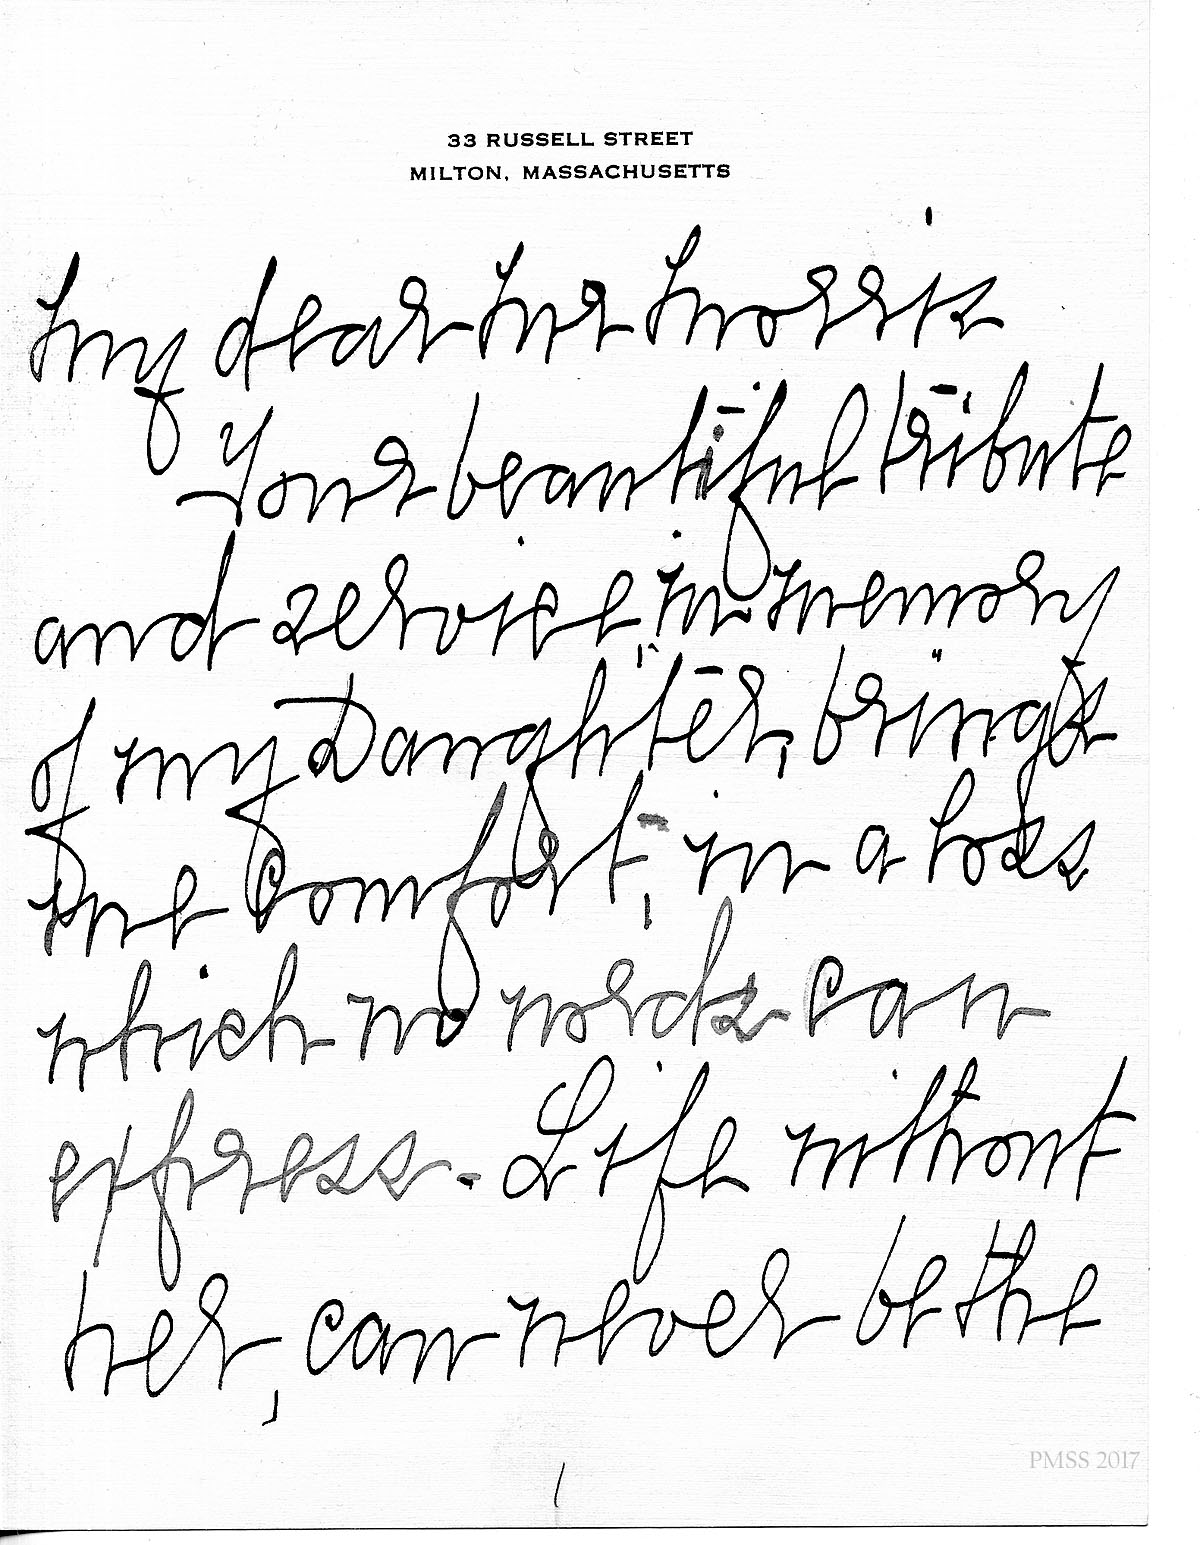 33 RUSSELL STREET
MILTON, MASSACHUSETTS
My dear Mr Morris
Your beautiful tribute
and service, in memory
of my Daughter, brings
me Comfort, in a loss
which no words can
express - Life without
her, can never be the
1
PMSS 2017